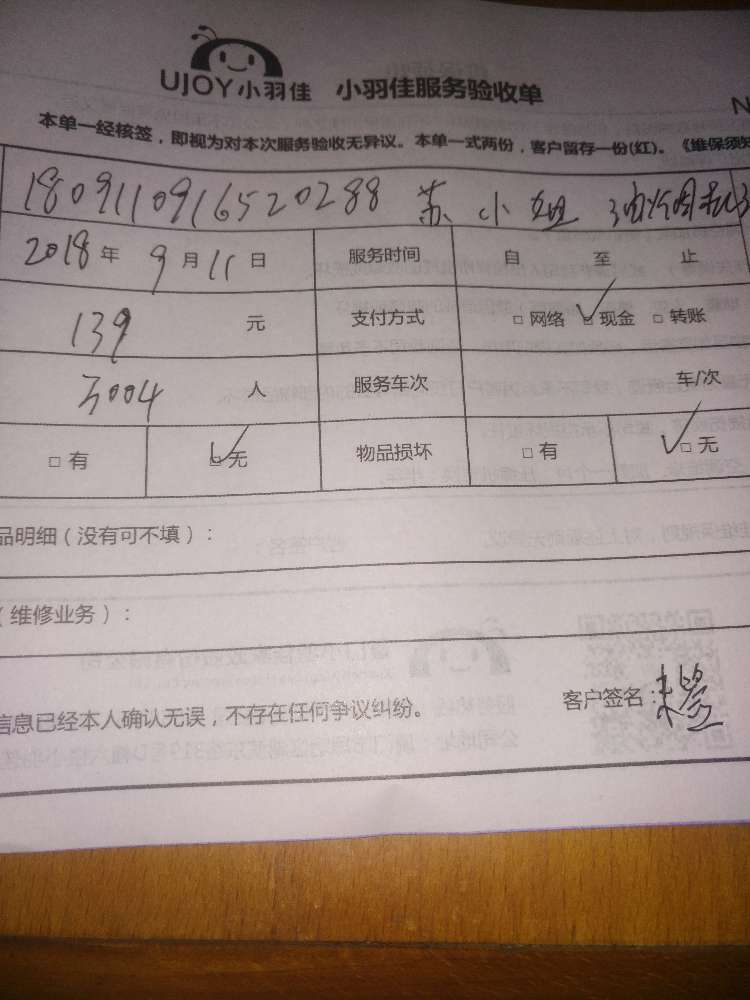 UJOY小羽佳 小羽佳服务验收单
N
本单一经核签，即视为对本次服务验收无异议。本单一式两份，客户留存一份(红)。《维保须知
1809110916520288 苏小姐 油烟机
2018年9月11日 服务时间 自 至 止
139 元 支付方式 □网络 ☑现金 □转账
3004 人 服务车次 车/次
□有 ☑无 物品损坏 □有 ☑无
品明细（没有可不填）：
（维修业务）：
信息已经本人确认无误，不存在任何争议纠纷。 客户签名：